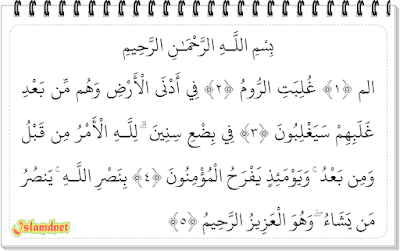 بِسْمِ اللَّـهِ الرَّحْمَـٰنِ الرَّحِيمِ
الم ﴿١﴾ غُلِبَتِ الرُّومُ ﴿٢﴾ فِي أَدْنَى الْأَرْضِ وَهُم مِّن بَعْدِ
غَلَبِهِمْ سَيَغْلِبُونَ ﴿٣﴾ فِي بِضْعِ سِنِينَ ۗ لِلَّـهِ الْأَمْرُ مِن قَبْلُ
وَمِن بَعْدُ ۚ وَيَوْمَئِذٍ يَفْرَحُ الْمُؤْمِنُونَ ﴿٤﴾ بِنَصْرِ اللَّـهِ ۚ يَنصُرُ
مَن يَشَاءُ ۖ وَهُوَ الْعَزِيزُ الرَّحِيمُ ﴿٥﴾
Islamdnet